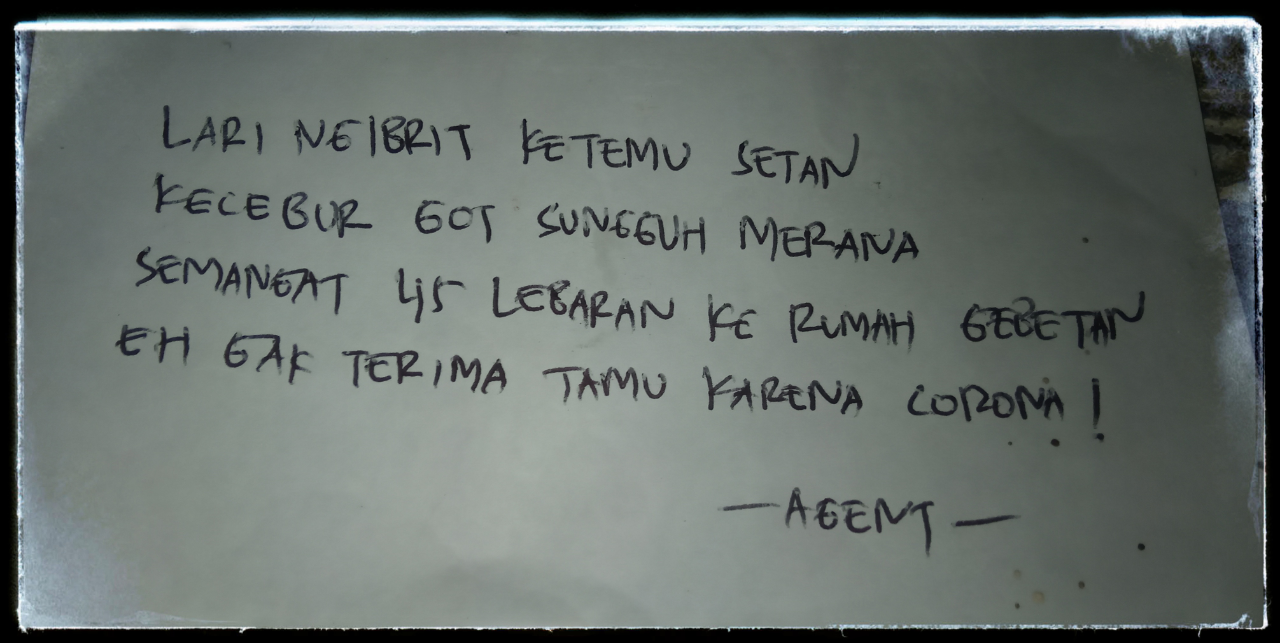 LARI NGIBRIT KETEMU SETAN
KECEBUR GOT SUNGGUH MERANA
SEMANGAT 45 LEBARAN KE RUMAH GEBETAN
EH GAK TERIMA TAMU KARENA CORONA!
—AGENT—